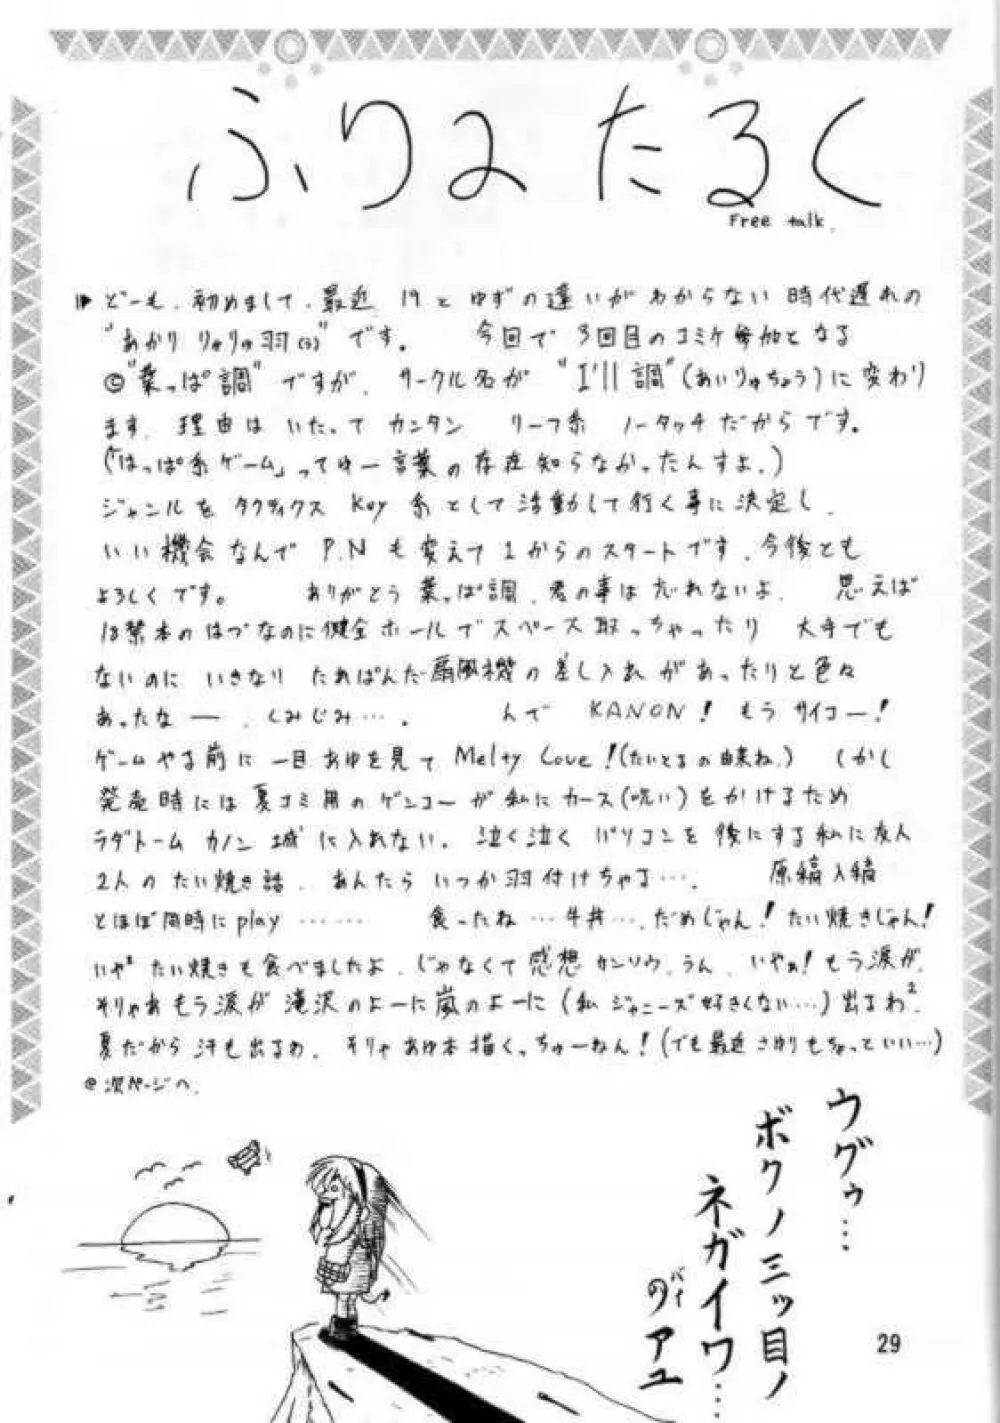 ふりーたるく
Free talk.
どーも、初めまして、最近 19と ゆずの違いがわからない 時代遅れの
"あかり りゅりゅ羽(3)" です。 今回で 3回目のコミケ参加となる
©"葉っぱ調" ですが、サークル名が "I'll調"(あいりゅちょう)に変わり
ます、理由は いたって カンタン リーフ系 ノータッチだからです。
(「はっぱ系ゲーム」ってゆー言葉の存在知らなかったんすよ。)
ジャンルを タクティクス Key 系として活動して行く事に決定し、
いい機会なんで P.N も変えて1からのスタートです、今後とも
よろしくです。 ありがとう 葉っぱ調、君の事は忘れないよ、 思えば
18禁本のはづなのに健全ホールでスペース取っちゃったり 大手でも
ないのに いきなり たれぱんだ扇風機の差し入れがあったりと色々
あったなー、しみじみ…。 んで KANON! もうサイコー!
ゲームやる前に一目あゆを見て Melty Love!(たいとるの由来ね。) しかし
発売時には夏コミ用のゲンコーが私にカース(呪い)をかけるため
ラダトーム カノン 城に入れない。泣く泣く パソコンを後にする私に友人
2人のたい焼き話、あんたら いつか羽付けちゃる…。 原稿入稿
とほぼ同時にplay …… 食ったね…牛丼…、だめじゃん!たい焼きじゃん!
いや² たい焼きも食べましたよ、じゃなくて感想カンソウ、うん、いやぁ!もう涙が、
そりゃあもう涙が滝沢のよーに嵐のよーに(私ジャニーズ好きくない…)出るわ²
夏だから汗も出るわ、そりゃあゆ本描くっちゅーねん!(でも最近さゆりもちょっといい…)
@次ページへ、
ウグゥ…
ボクノ三ッ目ノ
ネガイワ…
バイ
のアユ
29